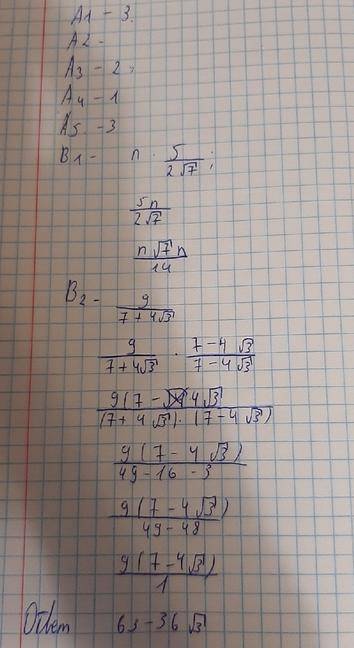 A1 - 3.
A2 -
A3 - 2,
A4 - 1
A5. - 3
B1. - n · 5/(2√7);
5n/(2√7)
n√7n/14
B2 - 9/(7+4√3)
9/(7+4√3) · (7-4√3)/(7-4√3)
9(7-4√3)/((7+4√3)·(7-4√3))
9(7-4√3)/(49-16-3)
9(7-4√3)/(49-48)
9(7-4√3)/1
Ответ 63-36√3